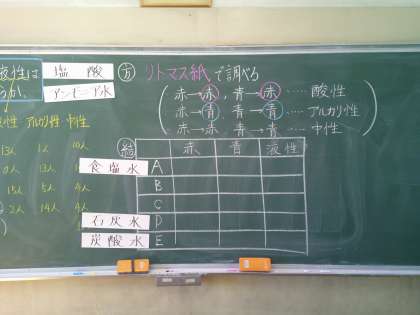 液性は
塩酸
アンモニア水
方 リトマス紙で調べる
赤→赤, 青→赤 ‥‥ 酸性
赤→青, 青→青 ‥‥ アルカリ性
赤→赤, 青→青 ‥‥ 中性
性 アルカリ性 中性
13人 1人 10人
0人 13人
15人 5人 4人
2人 14人 4人
結 赤 青 液性
食塩水 A
B
C
石灰水 D
炭酸水 E